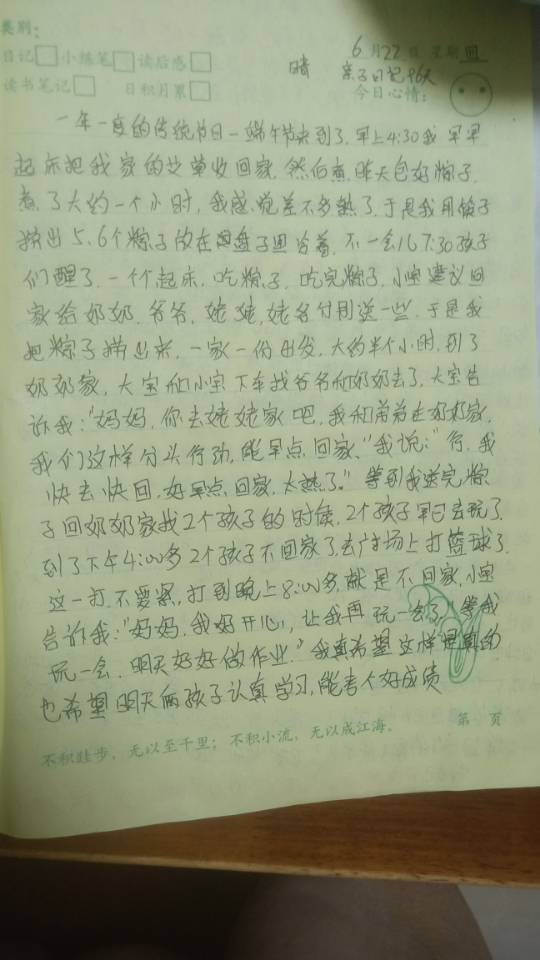 类别：
日记 小练笔 读后感 6月22日 星期四
读书笔记 日积月累 晴 亲子日记96天
今日心情：
一年一度的传统节日一端午节末到了，早上4:30我早早
起床把我家的 单收回家，然后煮昨天包好粽子，
煮了大约一个小时，我感觉差不多熟了，于是我用筷子
捞出5、6个粽子放在 盘子里 着，不一会儿7:30孩子
们醒了，一个个起床，吃粽子，吃完粽子，小宝建议回
家给奶奶、爷爷，姥姥，姥爷分别送一些，于是我
把粽子捞出来，一家一份出发，大约半个小时，到了
奶奶家，大宝和小宝下车找爷爷和奶奶去了，大宝告
诉我："妈妈，你去姥姥家吧，我和弟弟在奶奶家，
我们这样分头行动，能早点回家，"我说："行，我
快去快回，好早点回家，太热了。"等到我送完粽
子回奶奶家找2个孩子的时候，2个孩子早已去玩了，
到了下午4:00多2个孩子不回家了，去广场上打篮球了，
这一打不要紧，打到晚上8:00多，就是不回家，小宝
告诉我："妈妈，我好开心，让我再玩一会了，等我
玩一会，明天好好做作业。"我真希望这样 的
也希望明天两孩子认真学习，能考个好成绩
第 页
不积跬步，无以至千里；不积小流，无以成江海。